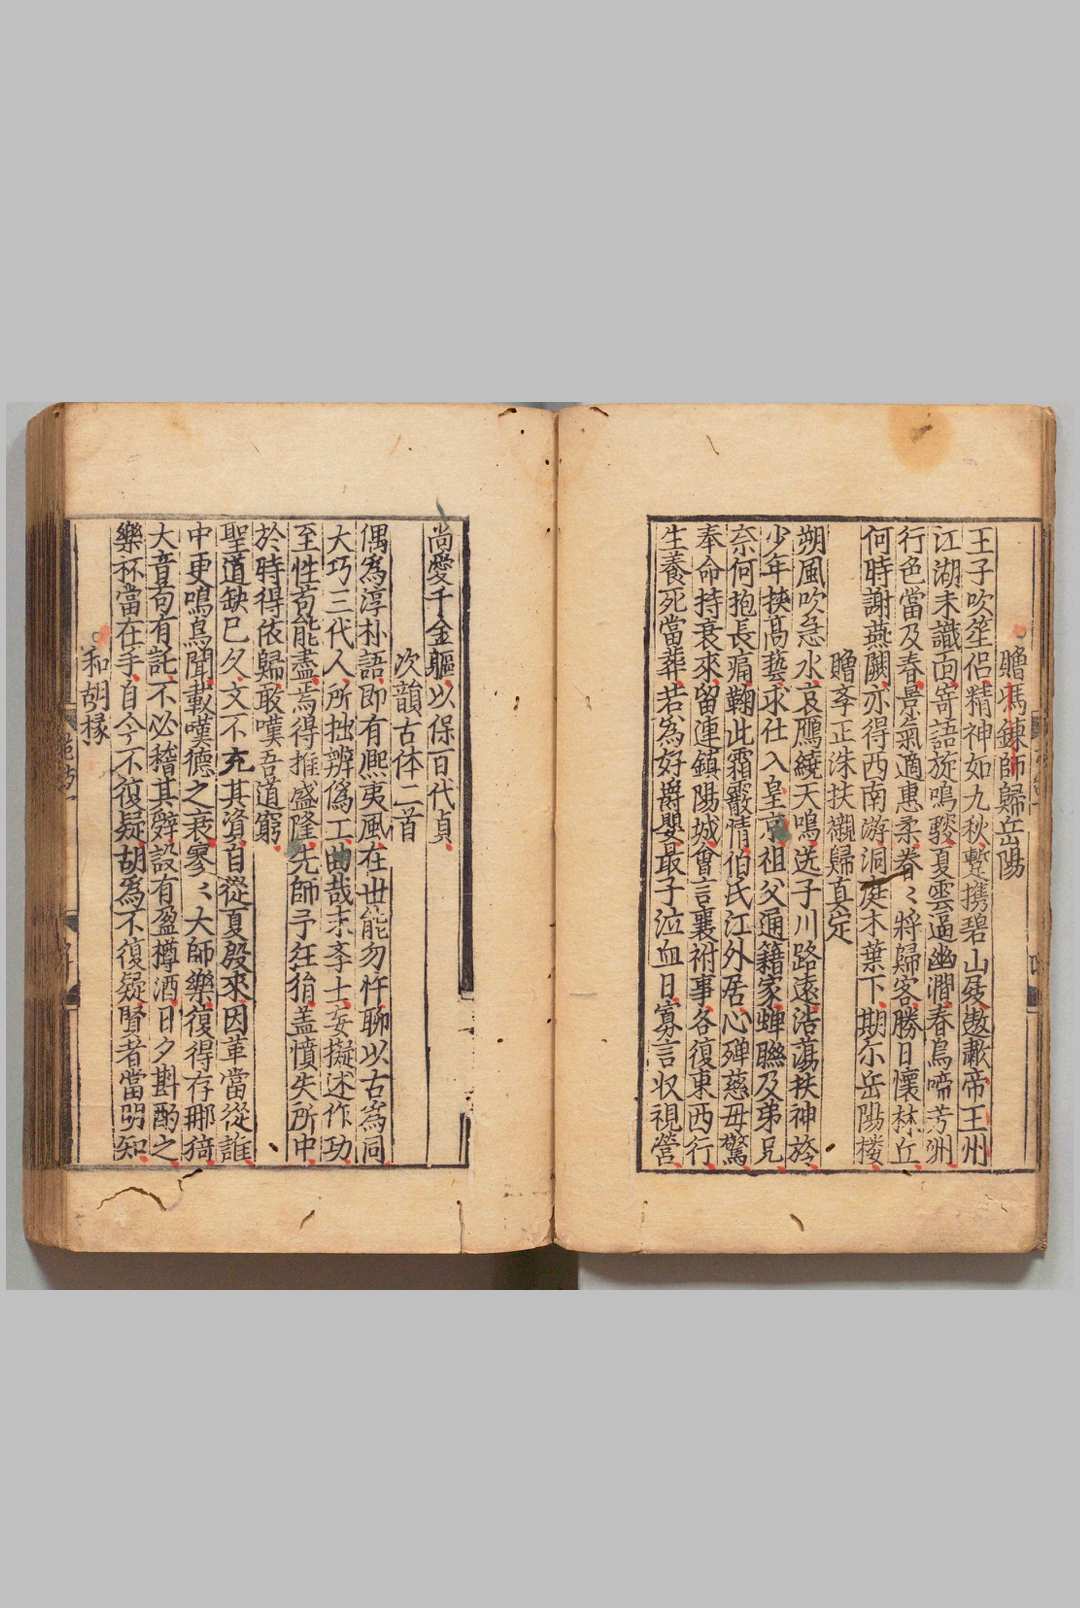 贈馮鍊師歸岳陽
王子吹笙侣精神如九秋蹔携碧山屐遨遊帝王州
江湖未識面寄語旋鳴騶夏雲逼幽澗春鳥啼芳洲
行色當及春景氣適惠柔眷〻將歸客勝日懷林丘
何時謝燕闕亦得西南游洞庭木葉下期尔岳陽楼
贈李正洙扶櫬歸真定
朔風吹急水哀鴈繞天鳴送子川路遠浩蕩扶神旍
少年挾髙藝求仕入皇京祖父通籍家蝉聮及弟兄
奈何抱長痛鞠此霜霰情伯氏江外居心殫慈母驚
奉命持衰來留連鎮陽城曾言襄祔事各復東西行
生養死當葬若為好爵嬰最子泣血日寡言収視營
尚愛千金軀以保百代貞
次韻古体二首
偶為淳朴語即有熈夷風在世能勿忤聊以古為同
大巧三代人所拙辨偽工曲哉末李士妄擬述作功
至性苟能盡焉得推盛隆先師予狂狷盖憤失所中
於時得依歸敢嘆吾道窮
聖道缺已久文不充其資自從夏殷來因革當從誰
中更鳴鳥聞載嘆德之衰寥〻大師樂復得存那猗
大音苟有託不必稽其辤設有盈樽酒日夕斟酌之
樂杯當在手自今不復疑胡為不復疑賢者當朙知
和胡㨔